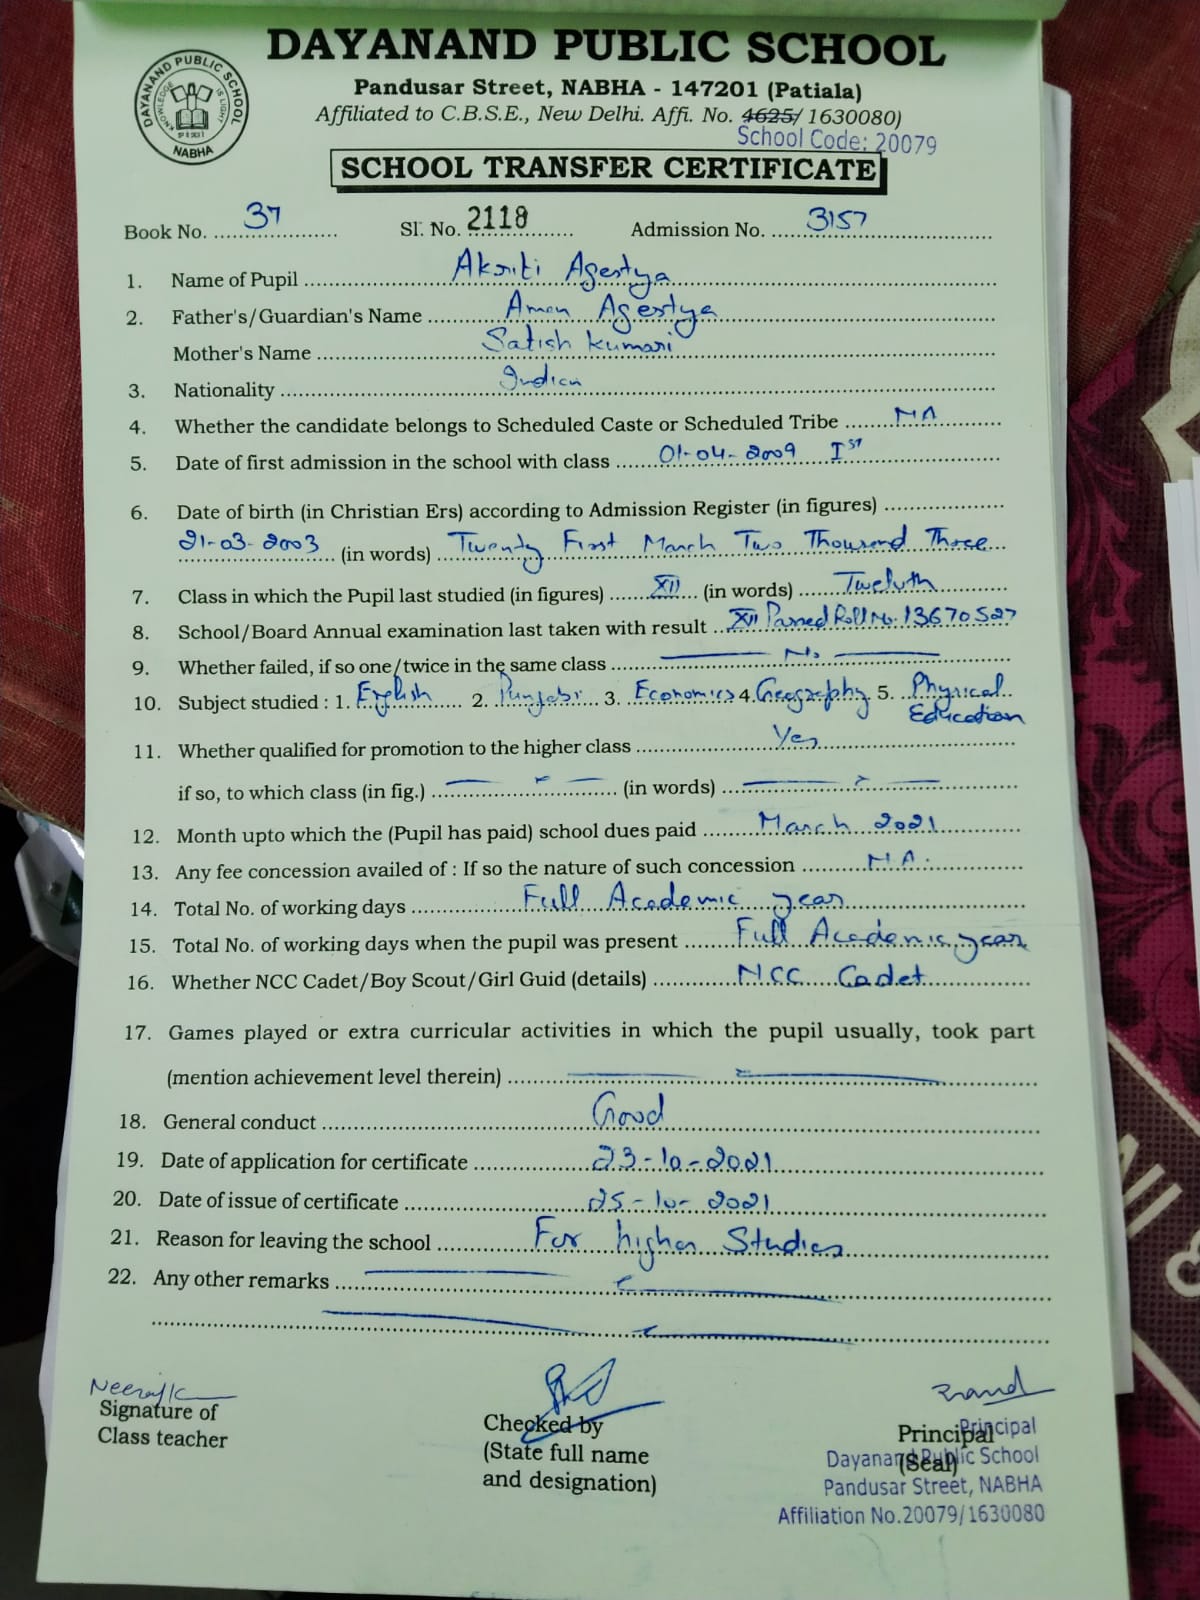 DAYANAND PUBLIC SCHOOL
Pandusar Street, NABHA - 147201 (Patiala)
Affiliated to C.B.S.E., New Delhi. Affi. No. 4625/ 1630080)
School Code: 20079
DAYANAND PUBLIC SCHOOL
KNOWLEDGE IS LIGHT
NABHA
SCHOOL TRANSFER CERTIFICATE
Book No. 37 Sl. No. 2118 Admission No. 3157
1. Name of Pupil Akriti Agestya
2. Father's/Guardian's Name Aman Agestya
Mother's Name Satish Kumari
3. Nationality Indian
4. Whether the candidate belongs to Scheduled Caste or Scheduled Tribe NA
5. Date of first admission in the school with class 01-04-2009 Ist
6. Date of birth (in Christian Ers) according to Admission Register (in figures)
21-03-2003 (in words) Twenty First March Two Thousand Three
7. Class in which the Pupil last studied (in figures) XII (in words) Tweluth
8. School/Board Annual examination last taken with result XII Passed Roll No. 13670527
9. Whether failed, if so one/twice in the same class No
10. Subject studied : 1. English 2. Punjabi 3. Economics 4. Geography 5. Physical
Education
11. Whether qualified for promotion to the higher class Yes
if so, to which class (in fig.) (in words)
12. Month upto which the (Pupil has paid) school dues paid March 2021
13. Any fee concession availed of : If so the nature of such concession N.A.
14. Total No. of working days Full Academic year
15. Total No. of working days when the pupil was present Full Academic year
16. Whether NCC Cadet/Boy Scout/Girl Guid (details) NCC Cadet
17. Games played or extra curricular activities in which the pupil usually, took part
(mention achievement level therein)
18. General conduct Good
19. Date of application for certificate 23-10-2021
20. Date of issue of certificate 25-10-2021
21. Reason for leaving the school For higher Studies
22. Any other remarks
Neeraj K
Signature of
Class teacher
Checked by
(State full name
and designation)
Principal
(Seal)
Principal
Dayanand Public School
Pandusar Street, NABHA
Affiliation No.20079/1630080